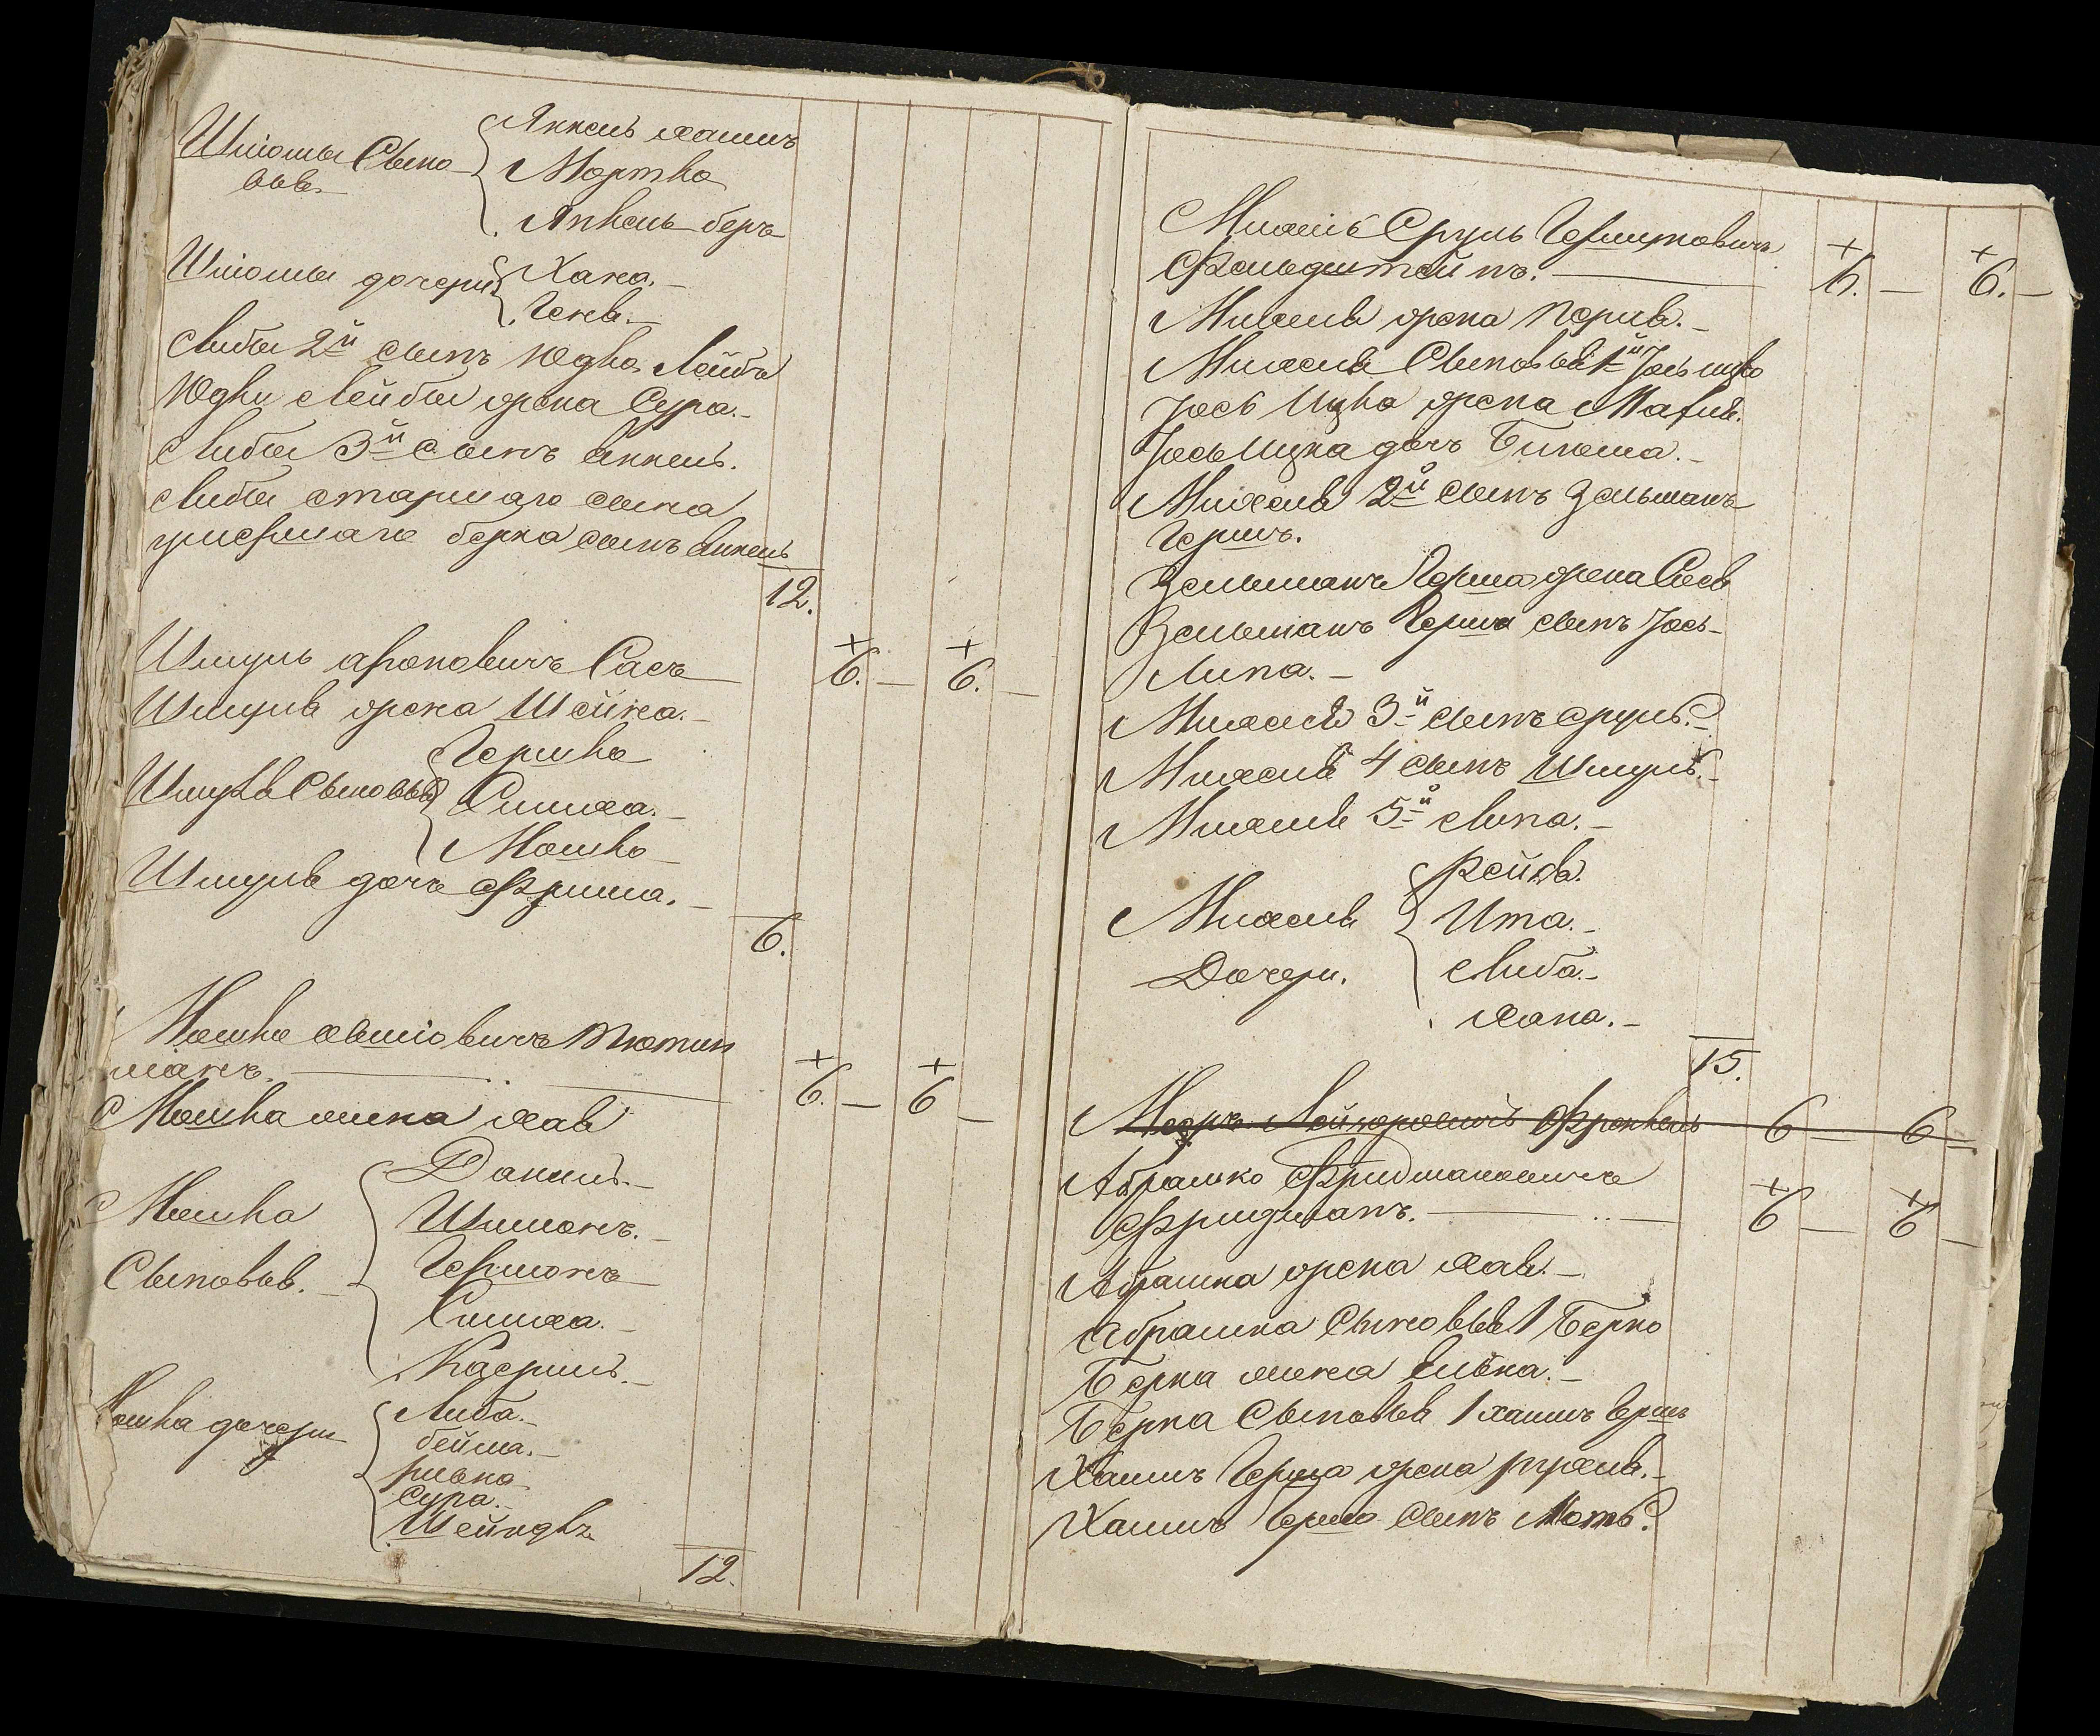 Шліомы Сыно
вье.
Янкель хаимъ
Мортко
Янкель беръ
Шліомы дочери
Хана.
Генв.
Либы 2й сынъ Юдко Лейба
Юдки Лейбы жена Сура.
Либы 3й сынъ Янкель.
Либы старшаго сына
умершаго берка сынъ Янкель
12.
Шмуль ароновичъ Сасъ 6. — 6. —
Шмуля жена Шейна.
Шмуля Сыновья
Гершко
Симха.
Мошко
Шмуля дочь Фрима.
6.
Мошко
манъ. 6. — 6 —
Мошка жена хая
Мошка
Сыновья.
Данил.
Шимонъ.
Гершонъ
Симха.
Касриль.
Мошка дочери
Либа.
бейла.
ривка
Сура.
Шейндль
12.
Михель Сруль Гершковичъ
Фельдштейнъ. 6. — 6. —
Михеля жена Перля.
Михеля Сыновья 1й Іось ицко
Іось Ицка жена Матля.
Іось Ицка дочь Билома.
Михеля 2й сынъ Зельманъ
Гершъ.
Зельманъ Герша жена Бася
Зельманъ Герша сынъ Іось
Липа.
Михеля 3й сынъ Сруль.
Михеля 4 сынъ Шмуль.
Михеля 5й Липа.
Михеля
Дочери.
Рейзя.
Ита.
Либа.
Хана.
15.
Мееръ Френкель 6 — 6 —
Абрашко Фридмановичъ
Фридманъ. 6 — 6 —
Абрашка жена хая.
Абрашка Сыновья 1 Берко
Берка жена Елька.
Берка Сыновья 1 хаимъ Гершъ
Хаимъ Герша жена рухля.
Хаимъ Герша сынъ Мотя.